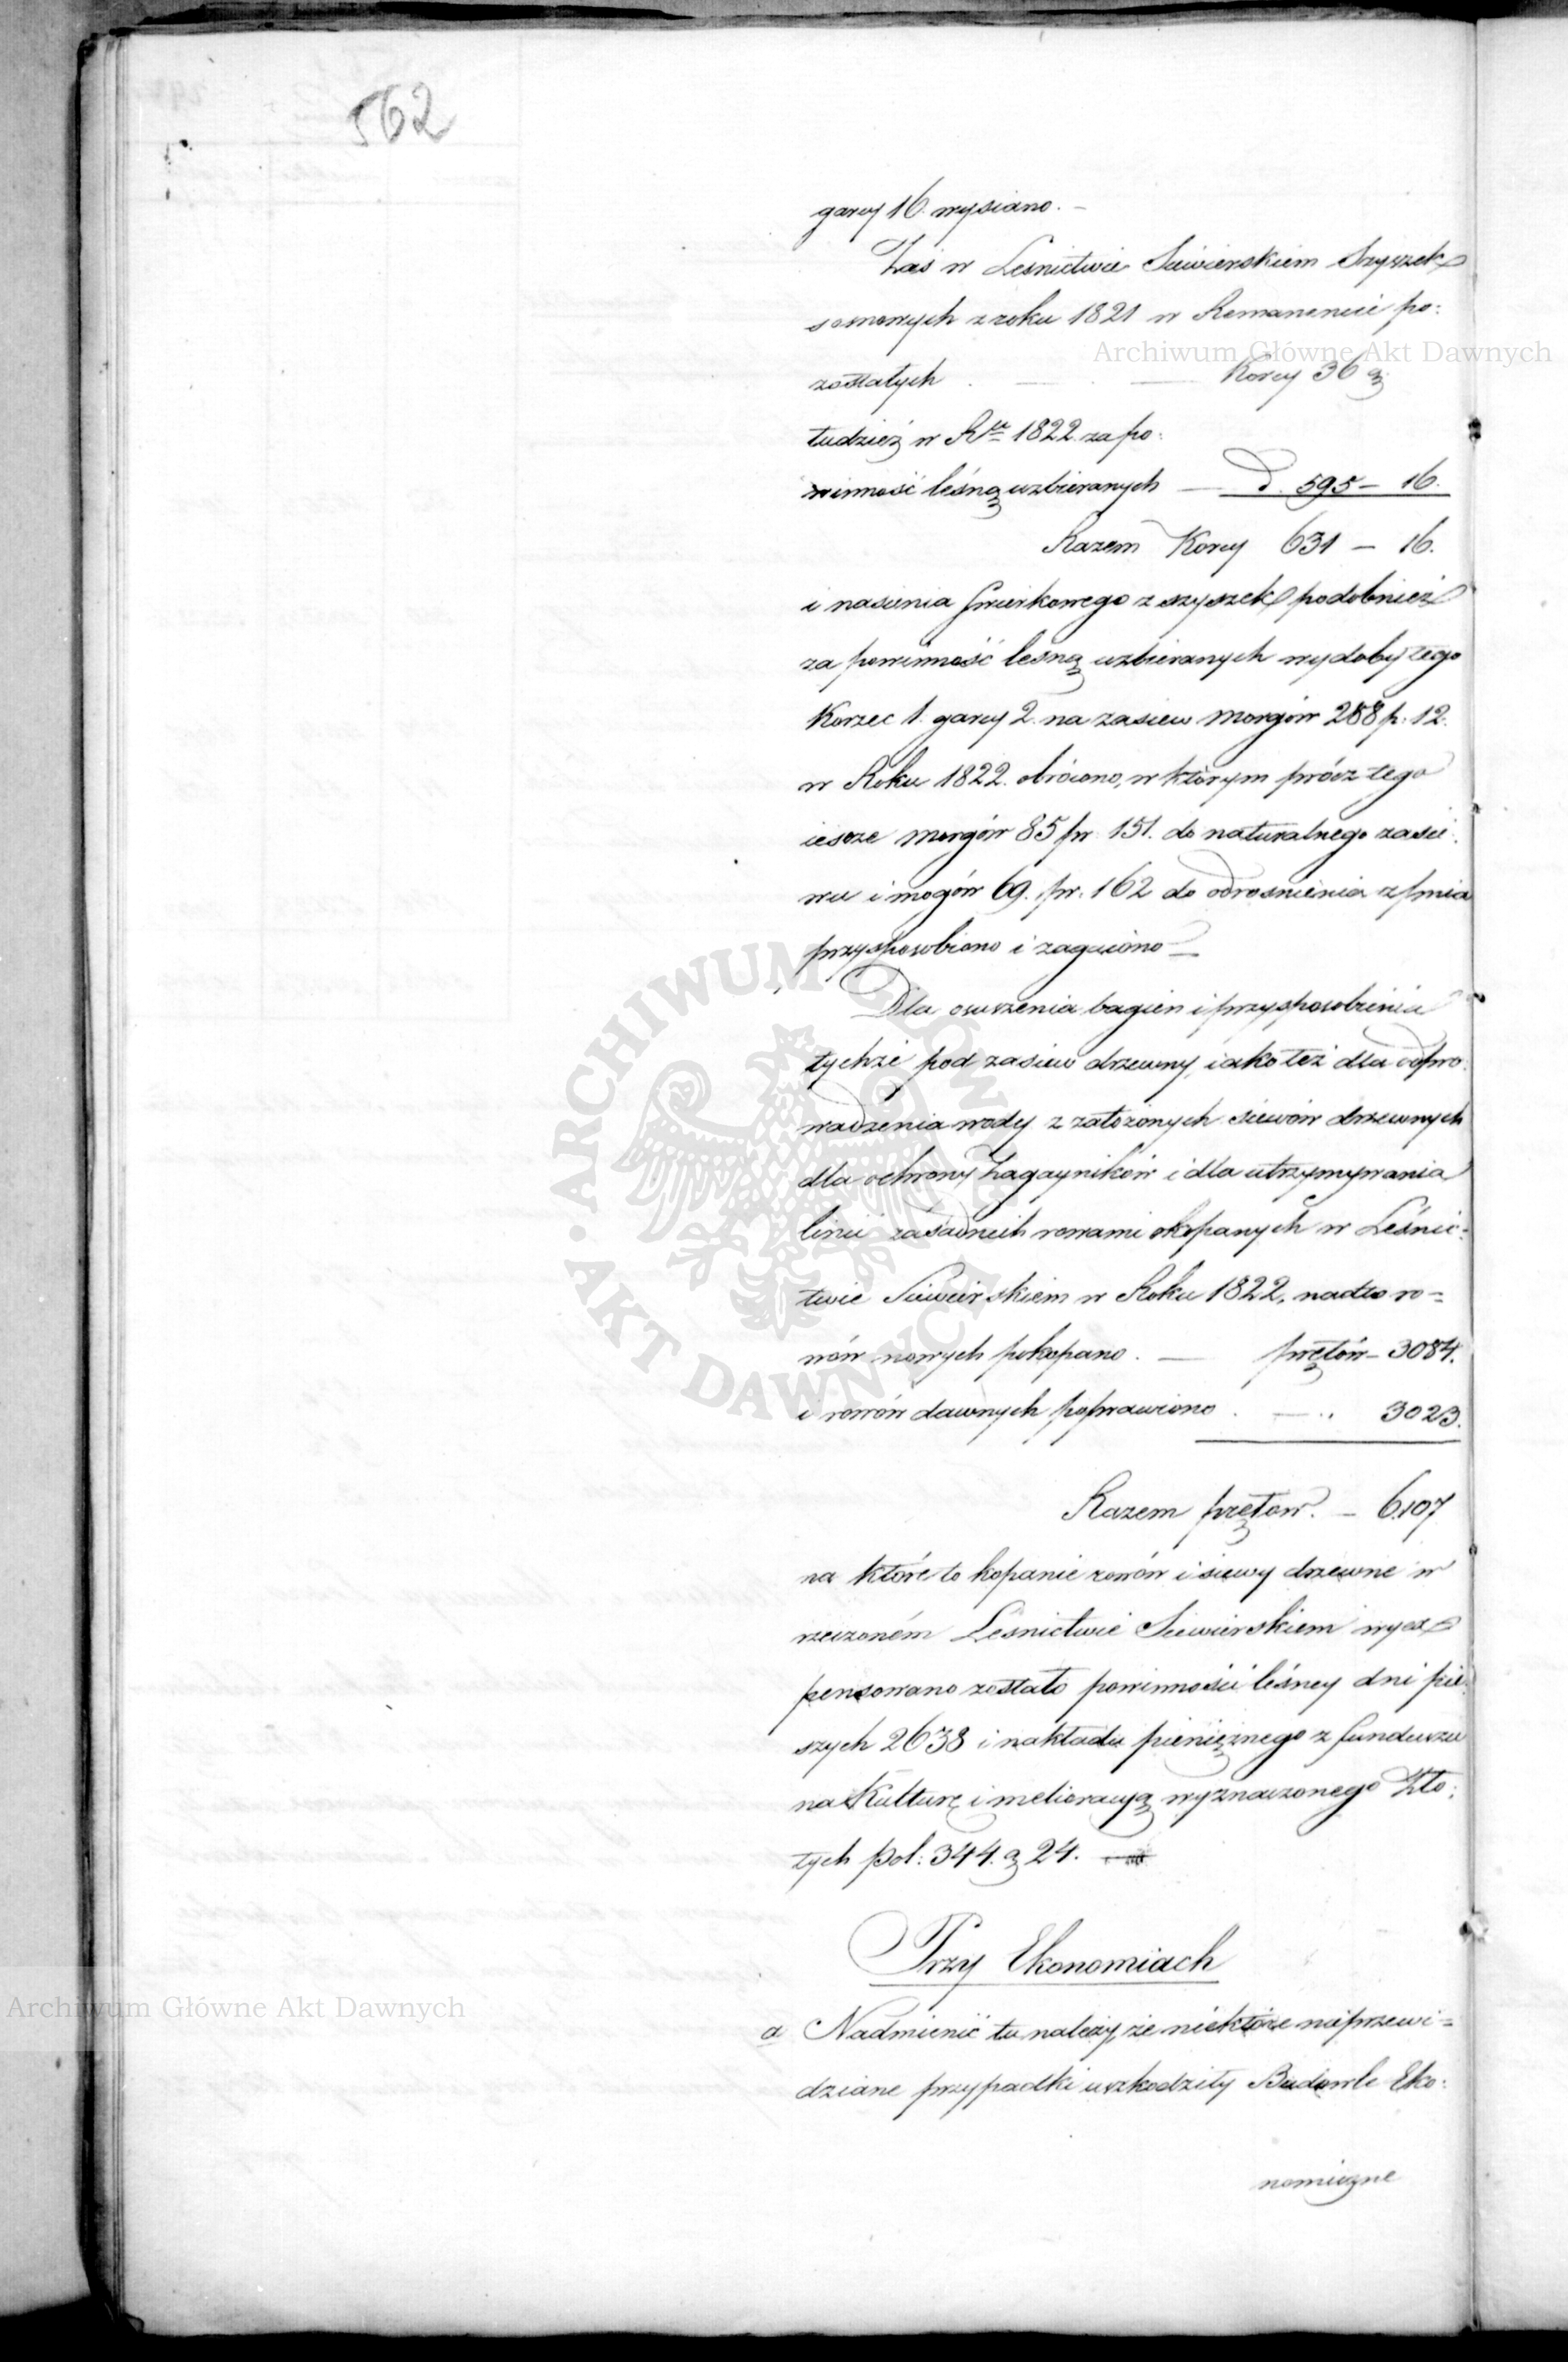 562
garcy 16. wysiano. –
Zaś w Leśnictwie Siewierskiem Szyszek
sosnowych z roku 1821 w Remanencie po:
zostałych . — . — Korcy 36 g
tudzież w Rku 1822 za po:
winność leśną uzbieranych — d. 595 – 16.
Razem Korcy 631 – 16.
i nasienia świerkowego z szyszek podobnież
za powinność leśną uzbieranych wydobytego
Korzec 1. garcy 2. na zasiew morgów 258 p: 12.
w Roku 1822. obrócono, w którym prócz tego
iescze morgów 85 pr 151. do naturalnego zasie:
wu i mogów 69. pr. 162 do odrosnienia z pnia
przysposobiono i zagaiono —
Dla osuszenia bagien i przysposobienia
tychże pod zasiew drzewny, iako też dla odpro:
wadzenia wody z założonych siewów drzewnych
dla ochrony Zagayników i dla utrzymywania
linii zasadniczych rowami okopanych w Leśnic:
twie Siewierskiem w Roku 1822, nadto ro=
wów nowych pokopano . — prętów – 3084.
i rowów dawnych poprawiono . — .. 3023.
Razem prętów. – 6107
na które to kopanie rowów i siewy drzewne w
rzeczoném Leśnictwie Siewierskiem wyex
pensowano zostało powinności leśney dni pie:
szych 2638 i nakładu pieniężnego z funduszu
na Kulturę i melioracyą wyznaczonego Zło:
tych pol: 344. g 24.
Przy Ekonomiach
a Nadmienić tu należy, że niektóre nieprzewi=
dziane przypadki uszkodziły Budowle Eko:
nomiczne
Archiwum Główne Akt Dawnych
Archiwum Główne Akt Dawnych
ARCHIWUM GŁÓWNE · AKT DAWNYCH ·